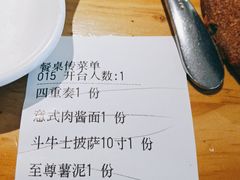 餐桌传菜单
015 开台人数:1
四重奏1 份
意式肉酱面1 份
斗牛士披萨10寸1 份
至尊薯泥1 份